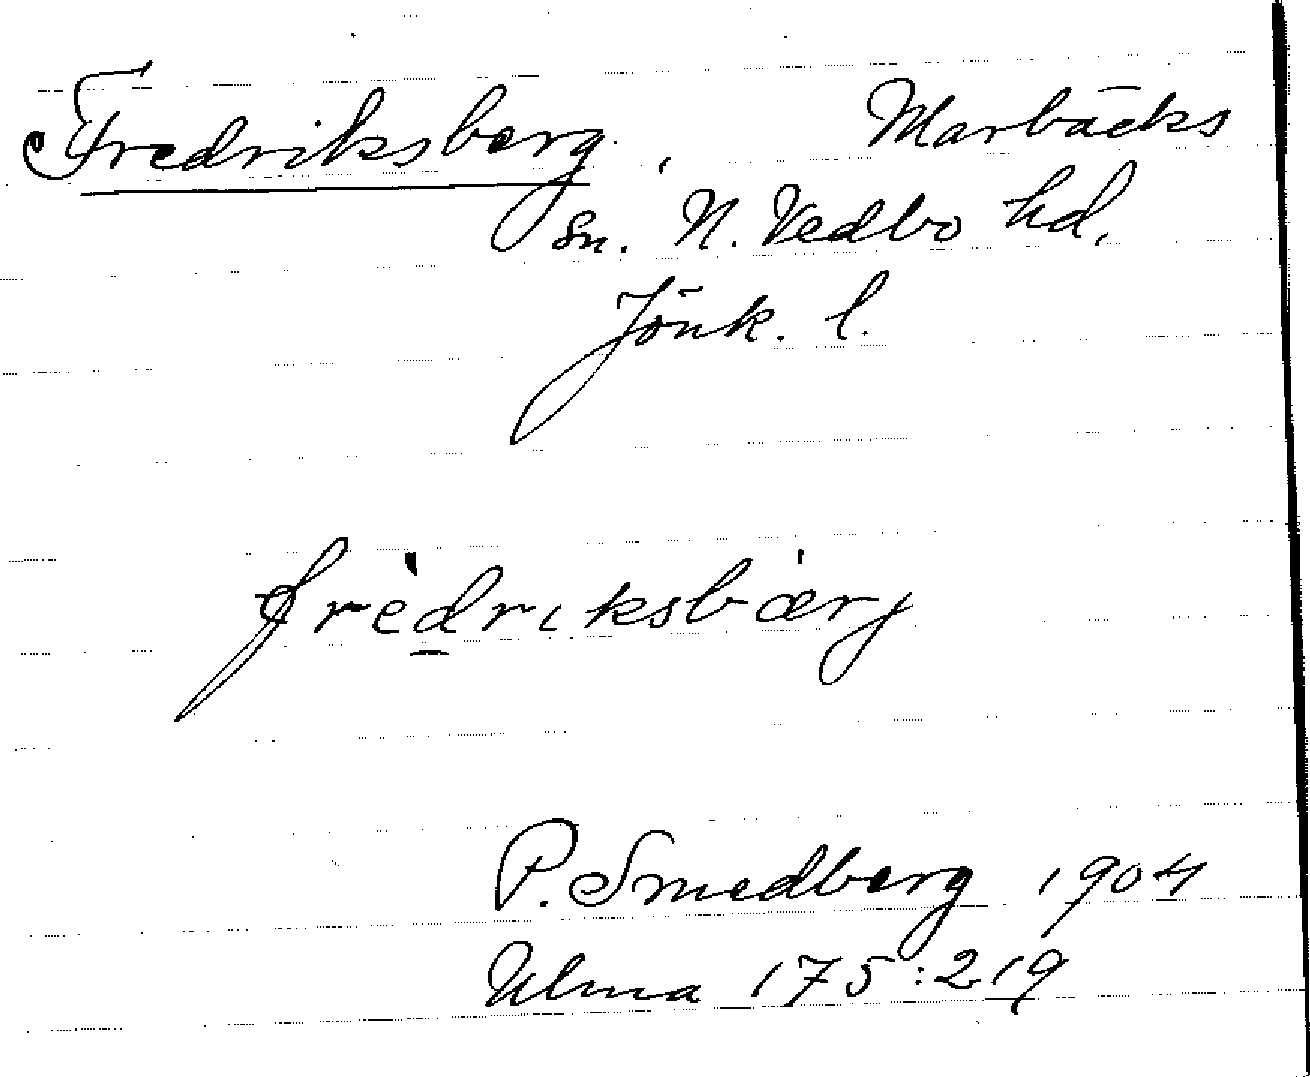 Fredriksberg, Marbäcks
sn. N. Vedbo hd.
Jönk. l.
frèdrıksbærj
P. Smedberg 1904
Ulma 175:219